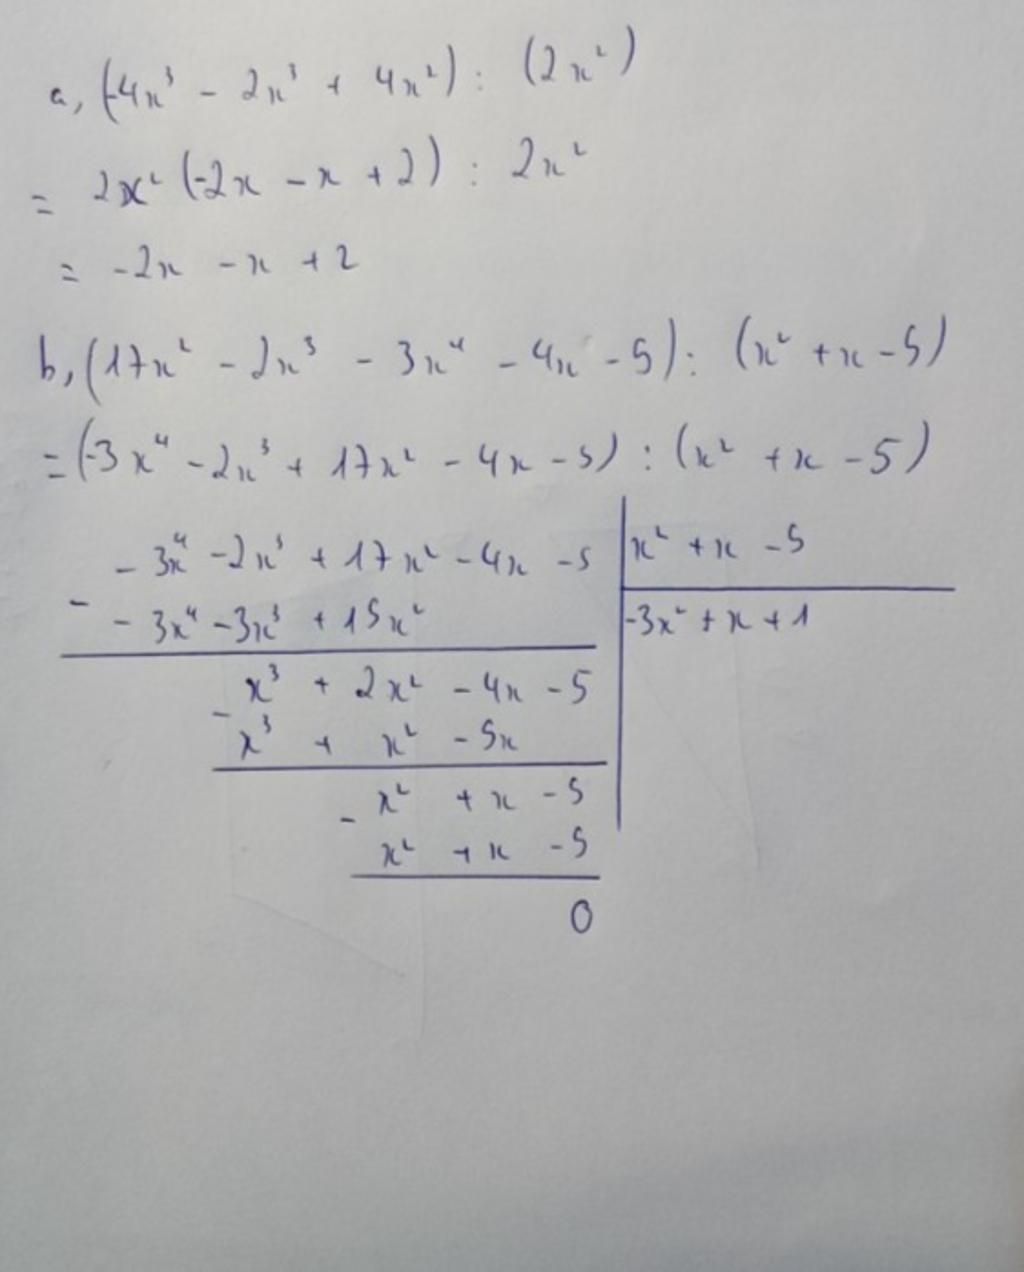 a, (-4x³ - 2x³ + 4x²) : (2x²)
= 2x² (-2x - x + 2) : 2x²
= -2x - x + 2
b, (17x² - 2x³ - 3x⁴ - 4x - 5) : (x² + x - 5)
= (-3x⁴ - 2x³ + 17x² - 4x - 5) : (x² + x - 5)
- 3x⁴ - 2x³ + 17x² - 4x - 5 | x² + x - 5
- - 3x⁴ - 3x³ + 15x² | -3x² + x + 1
x³ + 2x² - 4x - 5
- x³ + x² - 5x
x² + x - 5
- x² + x - 5
0